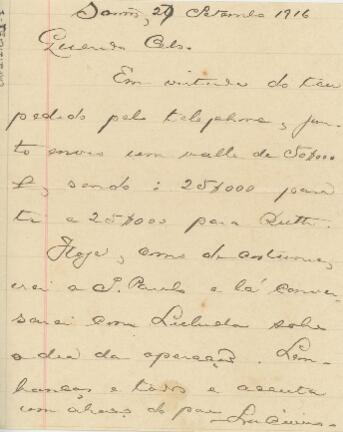 Santos, 27 Setembro 1916
Querido Celso.
Em virtude do teu
pedido pelo telephone, jun-
to envio um valle de 50$000
sendo: 25$000 para
ti e 25$000 para Ruth.
Hoje, como de costume,
irei a S. Paulo e lá conver-
sarei com sobre
o dia da operação. Lem-
branças a todos e aceita
um abraço do pae